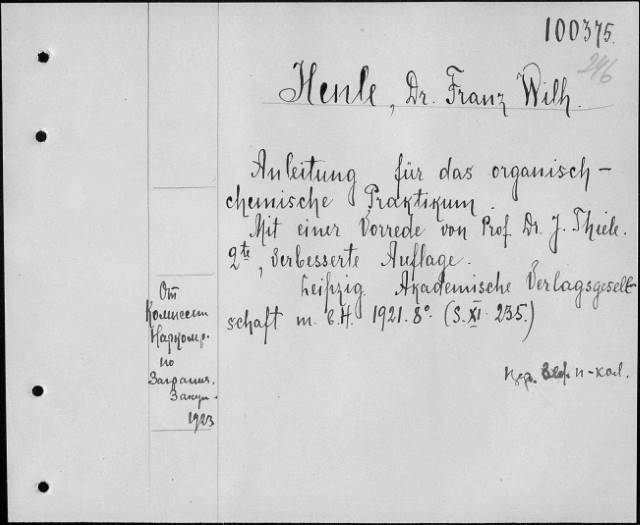 100375.
246
Henle, Dr. Franz Wilh.
Anleitung für das organisch-
chemische Praktikum.
Mit einer Vorrede von Prof. Dr. J. Thiele.
2te, verbesserte Auflage.
Leipzig. Akademische Verlagsgesell-
schaft m. b. H. 1921. 8°. (S. XI. 235.)
От
Комиссии
Наркомпр.
по
Загранич.
Закуп.
1923